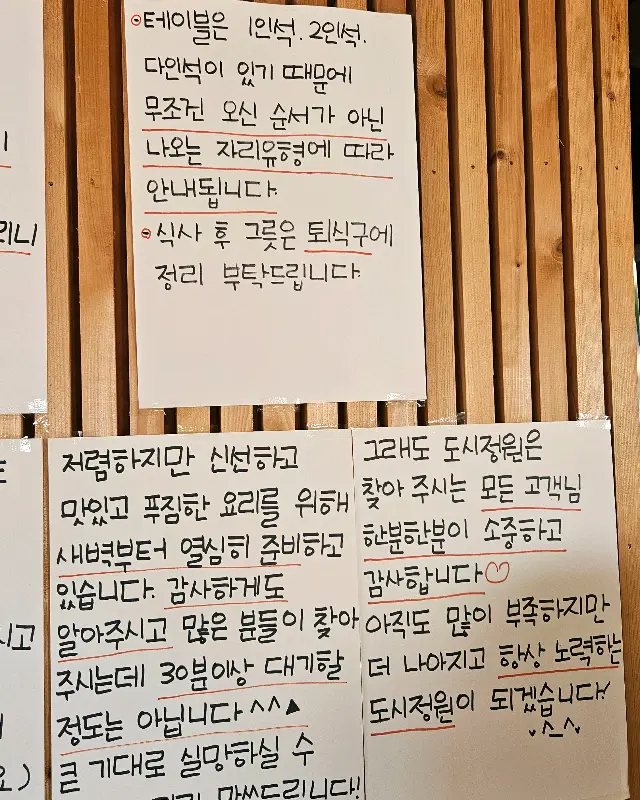 ⊙테이블은 1인석. 2인석.
다인석이 있기 때문에
무조건 오신 순서가 아닌
나오는 자리유형에 따라
안내됩니다.
⊙식사 후 그릇은 퇴식구에
정리 부탁드립니다.
리니
저렴하지만 신선하고
맛있고 푸짐한 요리를 위해
새벽부터 열심히 준비하고
있습니다. 감사하게도
알아주시고 많은 분들이 찾아
주시는데 30분이상 대기할
정도는 아닙니다 ^^▲
큰 기대로 실망하실 수
말씀드립니다!
그래도 도시정원은
찾아 주시는 모든 고객님
한분한분이 소중하고
감사합니다♡
아직도 많이 부족하지만
더 나아지고 항상 노력하는
도시정원이 되겠습니다!
시고
요)